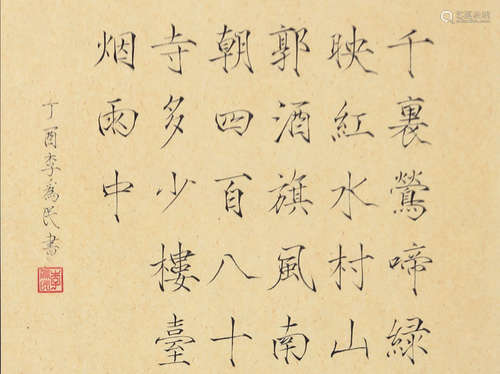 千裏鶯啼緑
映紅水村山
郭酒旗風南
朝四百八十
寺多少樓臺
烟雨中
丁酉李為民書